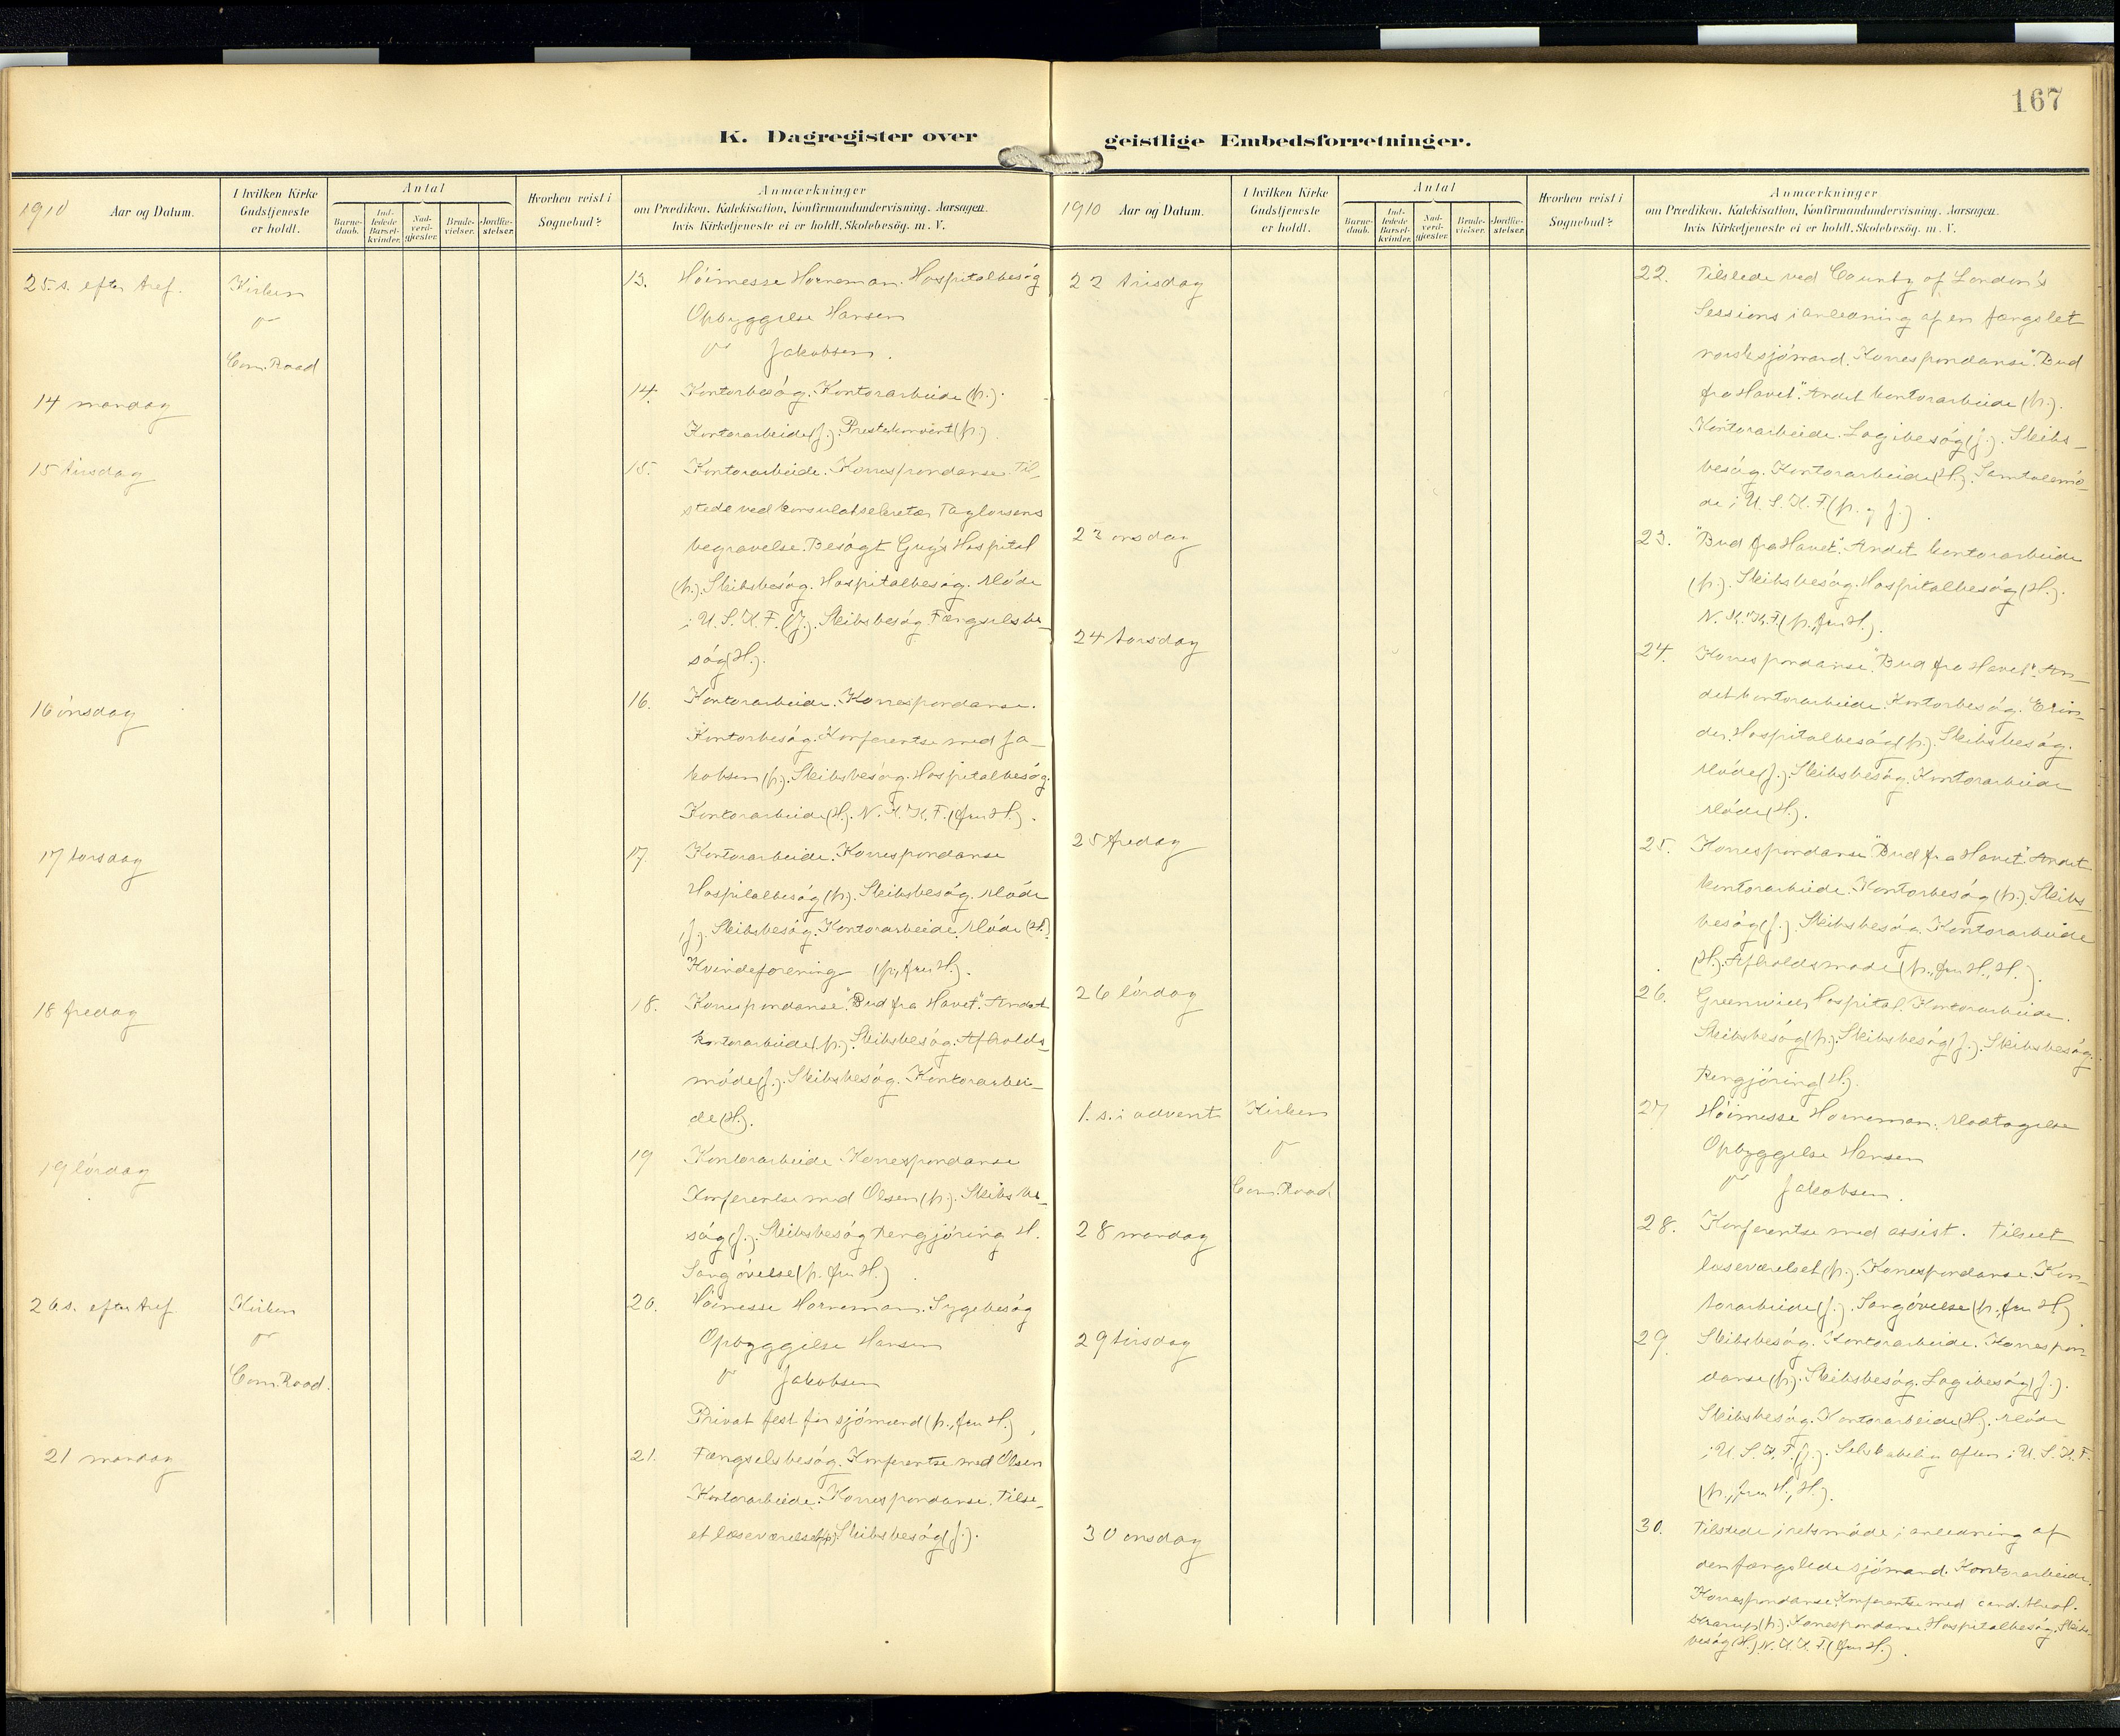 167
K. Dagregister over geistlige Embedsforretninger.
1910 Aar og Datum.
I hvilken Kirke Gudstjeneste er holdt.
Antal
Barne-daab.
Ind-ledede Barsel-kvinder.
Nad-verd-gjæster.
Brude-vielser.
Jordfæ-stelser.
Hvorhen reist i Sognebud?
Anmærkninger
om Prædiken, Katekisation, Konfirmandundervisning. Aarsagen,
hvis Kirketjeneste ei er holdt. Skolebesög. m. V.
25. s. efter tref. Kirken 13. Höimesse Horneman. Hospitalbesög
Opbyggelse Hansen
Com. Road Jakobsen.
14 mandag 14. Kontorbesög. Kontorarbeide (p.).
Kontorarbeide (J.). Prestekonvent (p.).
15 tirsdag 15. Kontorarbeide. Korrespondanse. Til-
stede ved konsulatsekretær Taylorsens
begravelse. Besögt Guy's Hospital
(p.). Skibsbesög. Hospitalbesög. Möde
i U. S. K. F. (J.). Skibsbesög. Fængselsbe-
sög (H.).
16 onsdag 16. Kontorarbeide. Korrespondanse.
Kontorbesög. Konferentse med Ja-
kobsen (p.). Skibsbesög. Hospitalbesög.
Kontorarbeide (H.). N. K. K. F. (fru H.).
17 torsdag 17. Kontorarbeide. Korrespondanse
Hospitalbesög (p.). Skibsbesög. Möde
(J.). Skibsbesög. Kontorarbeide. Möde (H.)
Kvindeforening (p., fru H.).
18 fredag 18. Korrespondanse. "Bud fra Havet". Andet
kontorarbeide (p.). Skibsbesög. Afholds-
möde (J.). Skibsbesög. Kontorarbei-
de (H.).
19 lördag 19 Kontorarbeide. Korrespondanse
Konferentse med Olsen (p.). Skibsbe-
sög (J.). Skibsbesög Rengjöring H.
Sangövelse (p. fru H.)
26. s. efter tref Kirken 20. Höimesse Horneman. Sygebesög
Opbyggelse Hansen
Com. Road. Jakobsen
Privat fest for sjömænd (p., fru H.)
21 mandag 21. Fængselsbesög. Konferentse med Olsen
Kontorarbeide. Korrespondanse. Tilse-
et læseværelset (p.). Skibsbesög (J.).
1910 Aar og Datum.
I hvilken Kirke Gudstjeneste er holdt.
Antal
Barne-daab.
Ind-ledede Barsel-kvinder.
Nad-verd-gjæster.
Brude-vielser.
Jordfæ-stelser.
Hvorhen reist i Sognebud?
Anmærkninger
om Prædiken, Katekisation, Konfirmandundervisning. Aarsagen,
hvis Kirketjeneste ei er holdt. Skolebesög. m. V.
22 tirsdag 22. Tilstede ved County of London's
Sessions i anledning af en fængslet
norsk sjömand. Korrespondanse. "Bud
fra Havet". Andet kontorarbeide (p.).
Kontorarbeide. Logibesög (J.). Skibs-
besög. Kontorarbeide (H.). Samtalemö-
de i U. S. K. F. (p. og J.).
23 onsdag 23. "Bud fra Havet". Andet kontorarbeide
(p.). Skibsbesög. Hospitalbesög (H.).
N. K. K. F. (p., fru H.).
24 torsdag 24. Korrespondanse. "Bud fra Havet". An-
det kontorarbeide. Kontorbesög. Erin-
der. Hospitalbesög (p.). Skibsbesög.
Möde (J.). Skibsbesög. Kontorarbeide
Möde (H.).
25 fredag 25. Korrespondanse "Bud fra Havet". Andet
kontorarbeide. Kontorbesög (p.). Skibs-
besög (J.). Skibsbesög. Kontorarbeide
(H.). Afholdsmöde (p., fru H., H.).
26 lördag 26. Greenwich Hospital. Kontorarbeide.
Skibsbesög (p.). Skibsbesög (J.). Skibsbesög.
Rengjöring (H.).
1. s. i advent Kirken 27 Höimesse Horneman. Modtagelse
Opbyggelse Hansen
Com. Road Jakobsen.
28 mandag 28. Konferentse med assist. Tilseet
læseværelset (p.). Korrespondanse. Kon-
torarbeide (J.). Sangövelse (p., fru H.)
29 tirsdag 29. Skibsbesög. Kontorarbeide. Korrespon-
danse (p.). Skibsbesög. Logibesög (J.).
Skibsbesög. Kontorarbeide (H.). Möde
i U. S. K. F. (J.). Selskabelig aften i U. S. K. F.
(p., fru H., H.).
30 onsdag 30. Tilstede i retsmöde i anledning af
den fængslede sjömand. Kontorarbeide.
Korrespondanse. Konferentse med cand. theol.
(p.). Korrespondanse. Hospitalbesög. Skibs-
besög (H.). N. K. K. F. (fru H.).